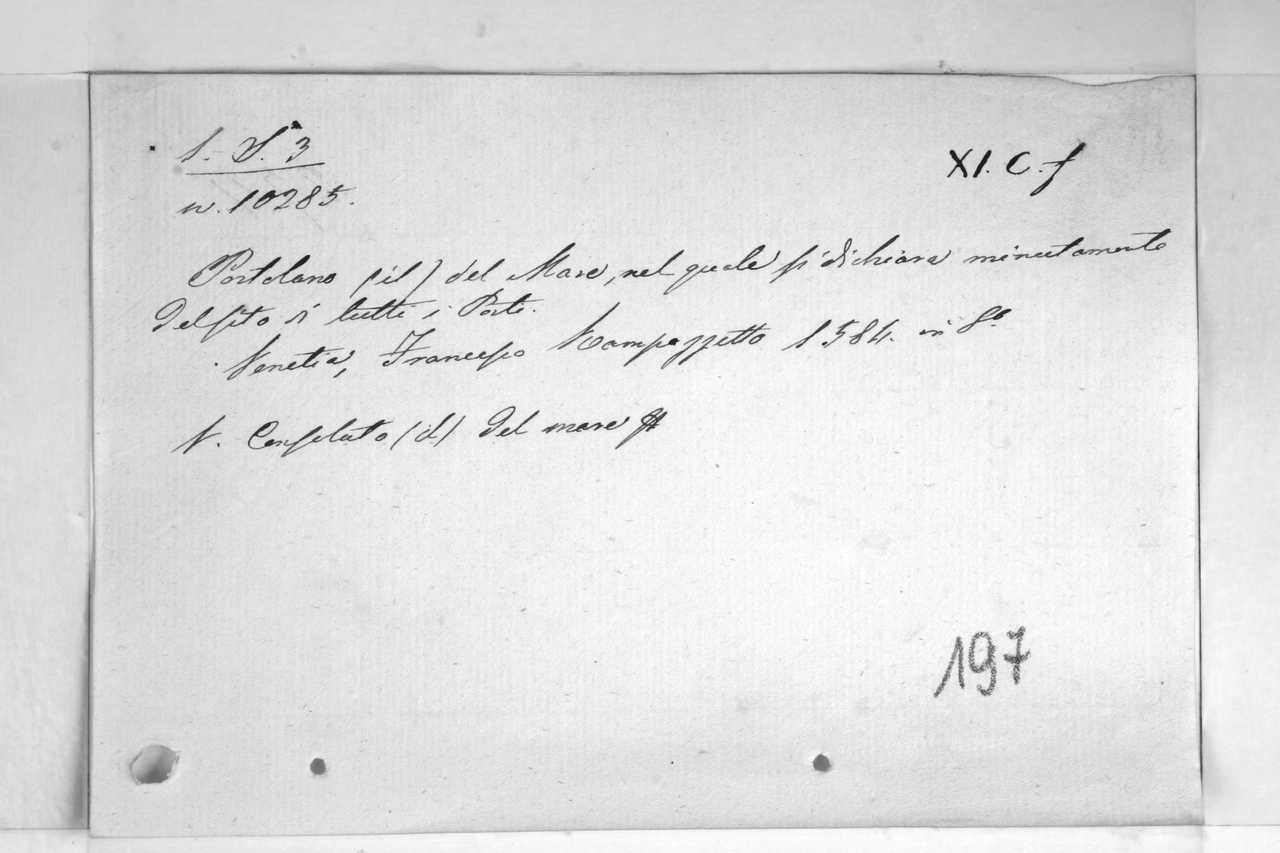 1. S. 3
XI. C. f
n. 10285.
Portolano (il) del Mare, nel quale si dichiara minutamente
del sito di tutti i Porti.
Venetia, Francesco Rampazzetto 1584. in 8º
V. Consolato (il) del mare
197